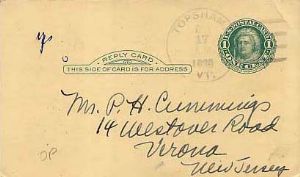 TOPSHAM
17
VT.
U.S. POSTAL CARD
1 1
REPLY CARD
THIS SIDE OF CARD IS FOR ADDRESS
Mr. P. H. Cummings
14 Westover Road
Verona
New Jersey